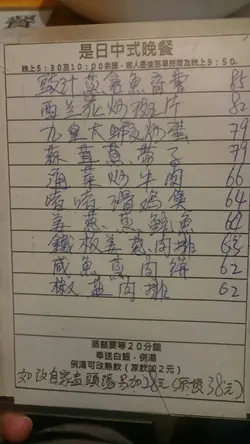 是日中式晚餐
晚上5:30至10:00供應，客人最後落單時間為晚上9:50。
豉汁蒸 魚 85
西蘭花炒斑片 82
九皇大蝦炒蛋 79
蒜茸蒸帶子 79
涌菜炒牛肉 66
啫啫滑鷄煲 64
姜葱蒸鯇魚
鐵板姜葱肉排 63
咸魚蒸肉餅 62
椒塩肉排 62
蒸餸要等20分鐘
奉送白飯，例湯
例湯可改熱飲 (凍飲加2元)
如改自家 頭湯另加28元(原價38元)